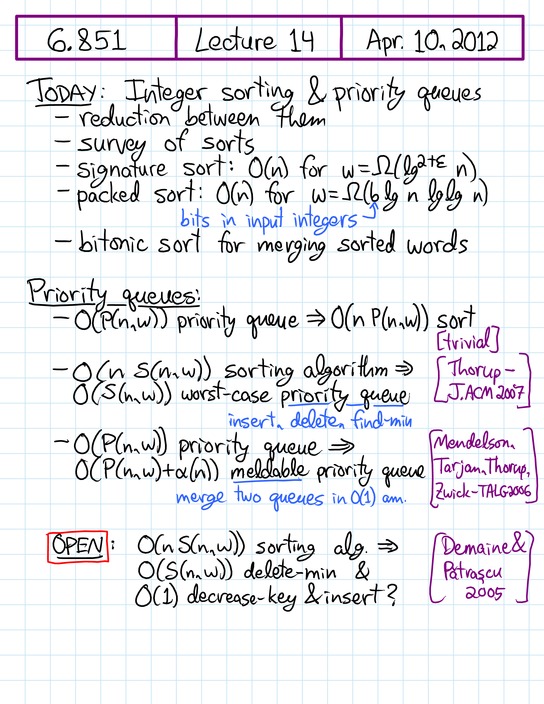 6.851 Lecture 14 Apr. 10, 2012
TODAY: Integer sorting & priority queues
– reduction between them
– survey of sorts
– signature sort: O(n) for w=Ω(lg²⁺ᵋ n)
– packed sort: O(n) for w=Ω(b lg n lg lg n)
bits in input integers
– bitonic sort for merging sorted words
Priority queues:
– O(P(n,w)) priority queue ⇒ O(n P(n,w)) sort
[trivial]
– O(n S(n,w)) sorting algorithm ⇒
O(S(n,w)) worst-case priority queue
insert, delete, find-min
[Thorup –
J.ACM 2007]
– O(P(n,w)) priority queue ⇒
O(P(n,w)+α(n)) meldable priority queue
merge two queues in O(1) am.
[Mendelson,
Tarjan, Thorup,
Zwick–TALG 2006]
OPEN: O(n S(n,w)) sorting alg. ⇒
O(S(n,w)) delete-min &
O(1) decrease-key & insert?
[Demaine &
Pătraşcu
2005]